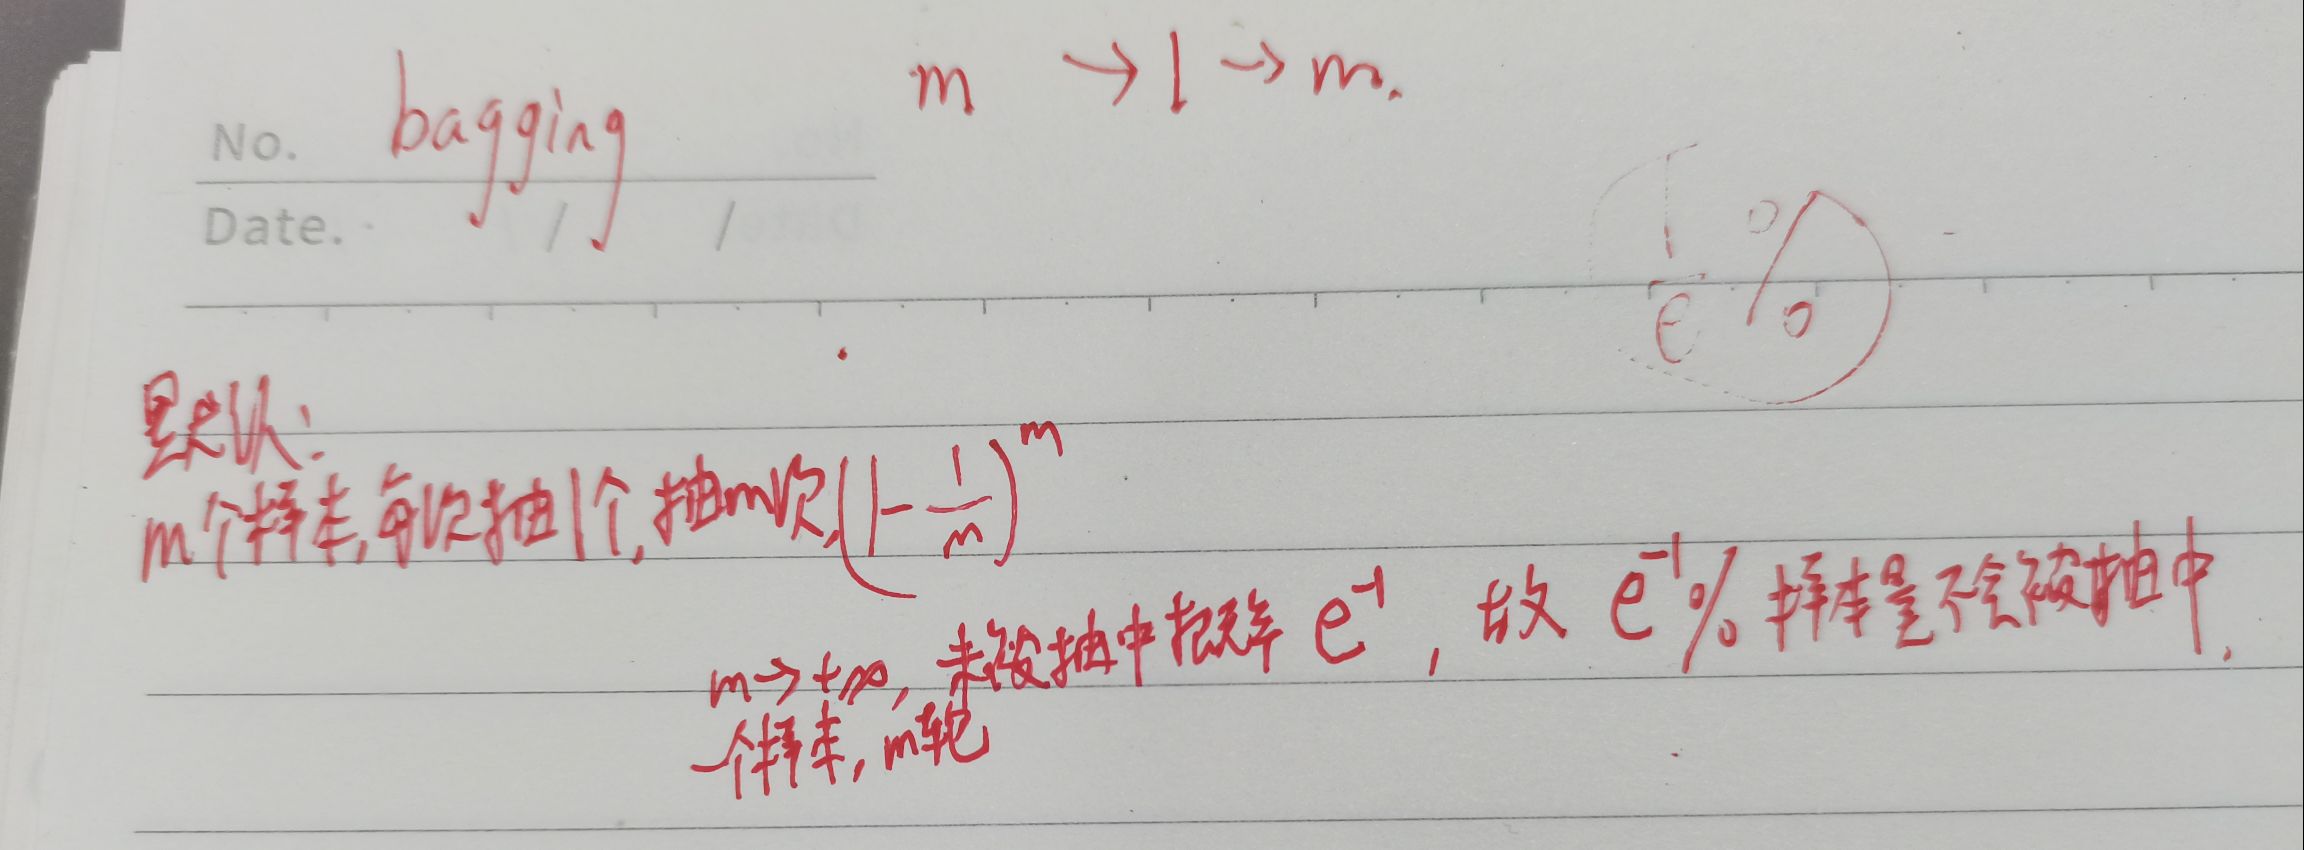 bagging m → 1 → m.
No.
Date. / /
1/e %
默认:
m个样本,每次抽1个,抽m次,(1-1/m)^m
m→+∞,未被抽中概率 e^-1,故 e^-1% 样本是不会被抽中.
一个样本,m轮